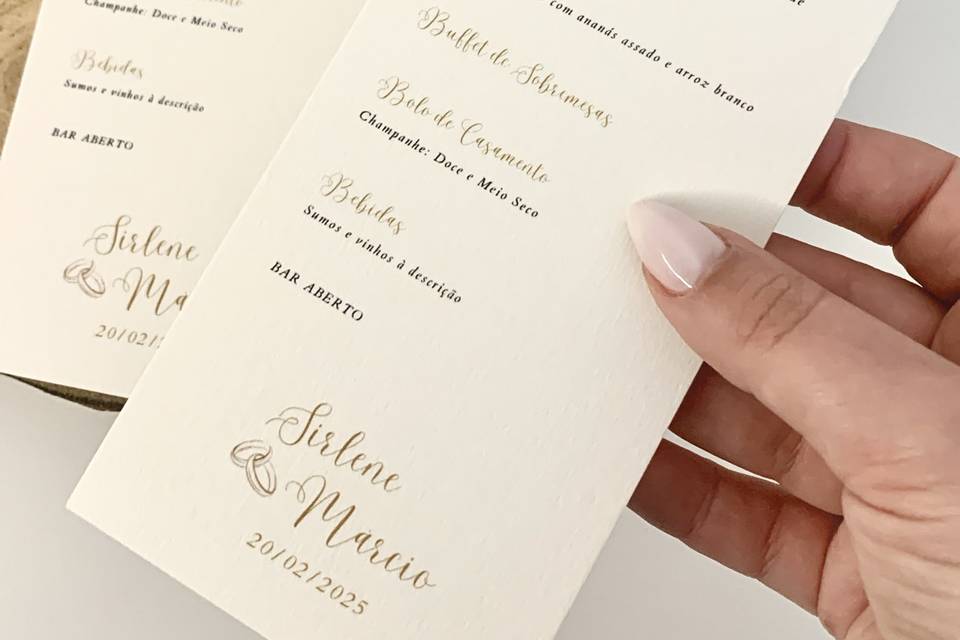 Champanhe: Doce e Meio Seco
Bebidas
Sumos e vinhos à descrição
BAR ABERTO
Sirlene
Má
20/02/
com ananás assado e arroz branco
Buffet de Sobremesas
Bolo de Casamento
Champanhe: Doce e Meio Seco
Bebidas
Sumos e vinhos à descrição
BAR ABERTO
Sirlene
Márcio
20/02/2025